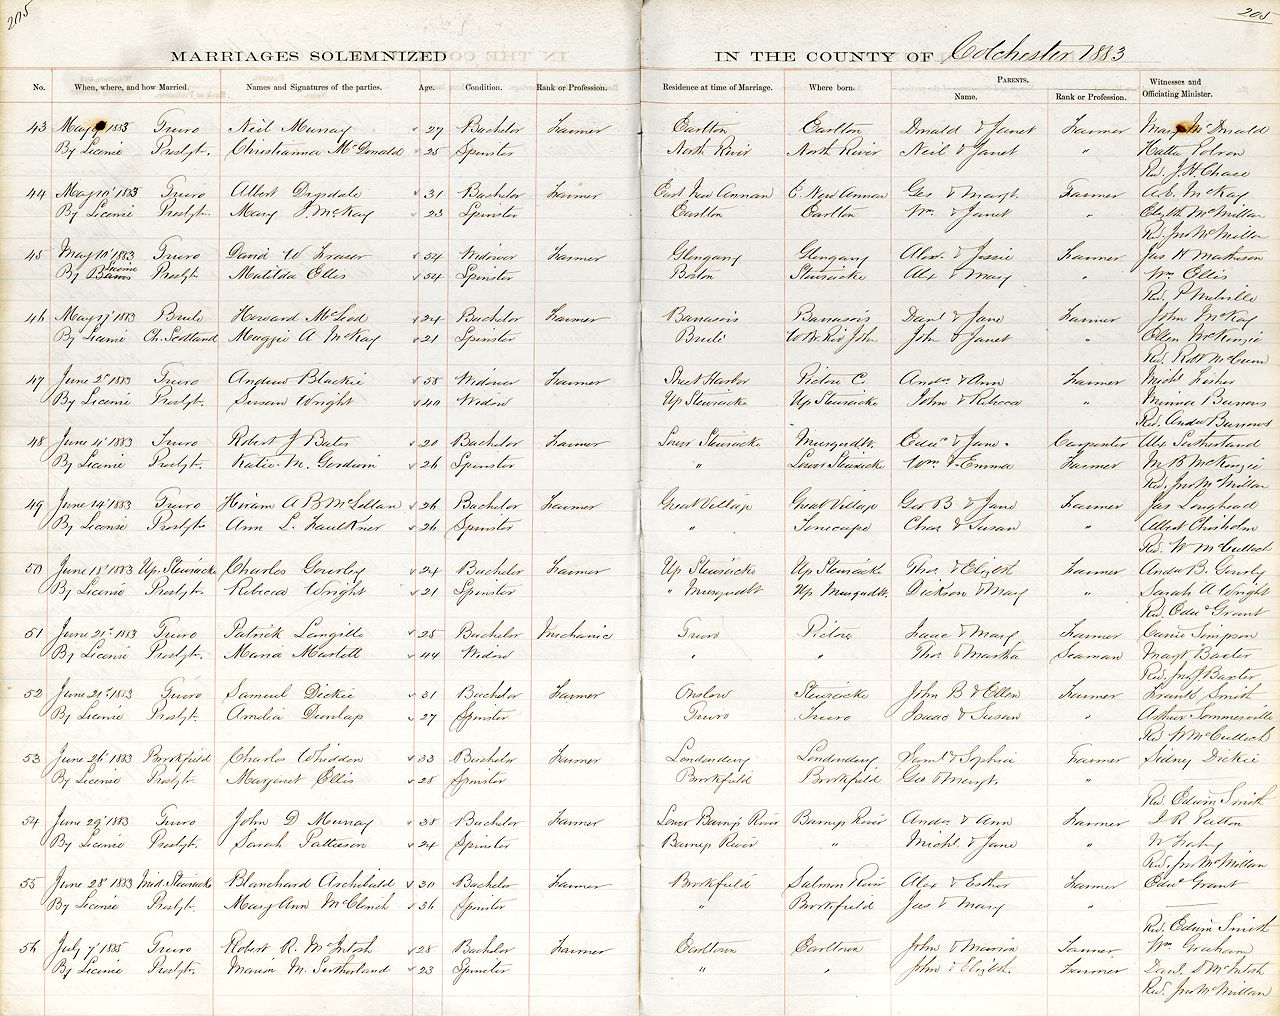 205
205
MARRIAGES SOLEMNIZED IN THE COUNTY OF Colchester 1883
No. When, where, and how Married. Names and Signatures of the parties. Age. Condition. Rank or Profession. Residence at time of Marriage. Where born. PARENTS. Name. Rank or Profession. Witnesses and Officiating Minister.
43 May 1883 Truro Neil Murray 27 Bachelor Farmer Earlton Earlton Donald & Janet Farmer Mary McDonald
By Licence Presbyt. Christianna McDonald 25 Spinster North River North River Neil & Janet " Hattie
Rev. J. H. Chase
44 May 10 1883 Truro Albert Drysdale 31 Bachelor Farmer East New Annan E. New Annan Geo & Margt. Farmer A. E. McKay
By Licence Presbyt. Mary J. McKay 23 Spinster Earlton Earlton Wm. & Janet " Elizth McMillan
Rev. Jno McMillan
45 May 10 1883 Truro David W Fraser 54 Widower Farmer Glengarry Glengarry Alex. & Jessie Farmer Jas H Matheson
By Banns Licence Presbyt. Matilda Ellis 34 Spinster Boston Stewiacke Alex & Mary " Wm. Ellis
Rev. P Melville
46 May 17 1883 Brule Howard McLeod 24 Bachelor Farmer Danl & Jane Farmer John McKay
By Licence Ch. Scotland Maggie A McKay 21 Spinster Brule W. B. Riv John John & Janet " Ellen McKenzie
Rev. Robt McCunn
47 June 2 1883 Truro Andrew Blackie 58 Widower Farmer Sheet Harbor Pictou C. Andw. & Ann Farmer Michl Fisher
By Licence Presbyt. Susan Wright 40 Widow Up Stewiacke Up Stewiacke John & Rebecca " Minnie Burrows
Rev. Andw Burrows
48 June 4 1883 Truro Robert J Bates 20 Bachelor Farmer Lower Stewiacke Musquodt. Edw. & Jane Carpenter Alex Sutherland
By Licence Presbyt. Katie M. 26 Spinster " Lower Stewiacke Wm. & Emma Farmer M B McKenzie
Rev. Jno McMillan
49 June 14 1883 Truro Hiram A B McLellan 26 Bachelor Farmer Great Village Great Village Geo B & Jane Farmer Jas Loughead
By License Presbytn Ann L. Faulkner 26 Spinster " Chas & Susan " Albert Chisholm
Rev. W McCulloch
50 June 18 1883 Up. Stewiacke Charles Gourley 24 Bachelor Farmer Up Stewiacke Up Stewiacke Thos & Elizth Farmer Andw B. Gourley
By Licence Presbyt. Rebecca Wright 21 Spinster " Musquodt Up. Musquodt. Dickson & Mary " Sarah A Wright
Rev. Edw Grant
51 June 21 1883 Truro Patrick Langille 25 Bachelor Mechanic Truro Pictou Isaac & Mary Farmer Carrie Simpson
By Licence Presbyt. Maria Martell 44 Widow " " Thos & Martha Seaman Margt Baxter
Rev. Jno J Baxter
52 June 21 1883 Truro Samuel Dickie 31 Bachelor Farmer Onslow Stewiacke John B & Ellen Farmer Frank Smith
By Licence Presbyt. Amelia Dunlap 27 Spinster Truro Truro Isaac & Susan " Arthur Sommerville
Rev W McCulloch
53 June 26 1883 Brookfield Charles Whidden 33 Bachelor Farmer Londonderry Londonderry Saml & Sophia Farmer Sidney Dickie
By Licence Presbyt. Margaret Ellis 28 Spinster Brookfield Brookfield Geo & Margt. "
Rev. Edwin Smith
54 June 29 1883 Truro John D Murray 38 Bachelor Farmer Lower Barneys River Barneys River Andw. & Ann Farmer J R Patton
By Licence Presbyt. Sarah Patterson 24 Spinster Barneys River " Michl & Jane " W
Rev. Jno McMillan
55 June 28 1883 Mid. Stewiacke Blanchard Archibald 30 Bachelor Farmer Brookfield Salmon River Alex & Esther Farmer Edwd Grant
By Licence Presbyt. Mary Ann 36 Spinster " Brookfield Jas & Mary "
Rev. Edwin Smith
56 July 7 1885 Truro Robert R. McIntosh 28 Bachelor Farmer Earltown Earltown John & Marion Farmer Wm. Graham
By Licence Presbyt. Marion M. Sutherland 23 Spinster " " John & Elizth. Farmer Danl. D McIntosh
Rev. Jno McMillan